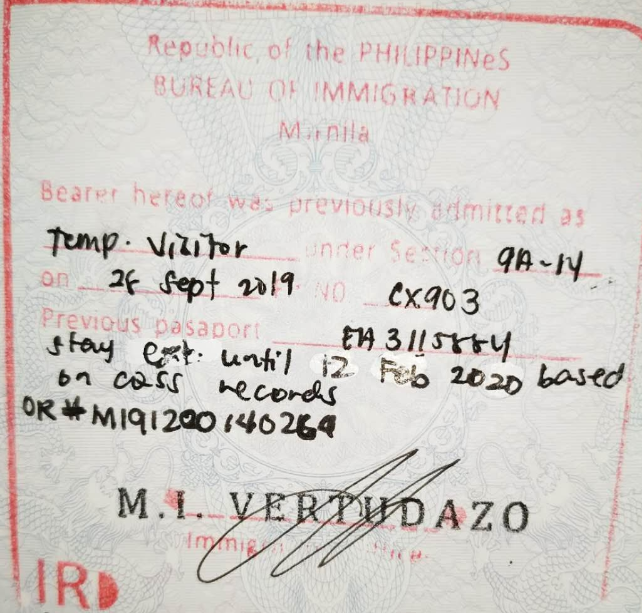 Republic of the PHILIPPINeS
BUREAU OF IMMIGRATION
Manila
Bearer hereof was previously admitted as
Temp. Visitor under Section 9A-14
on Sept 2019 NO CX903
Previous pasaport
stay ext. until 12 Feb 2020 based
on cass records
OR#
M.I. VERTUDAZO
IRD